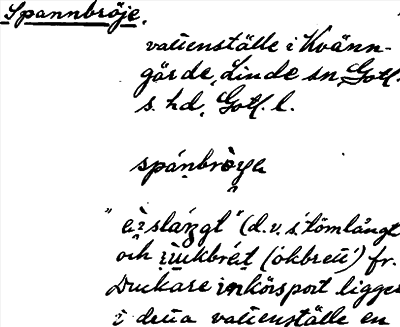 Spannbröje.
vattenställe i Kvänn-
gårde, Linde sn, Gotl.
s. hd, Gotl. l.
spánbròya
"èi slángt" (d.v.s. 'tömlångt')
och (ökbrett) fr.
Duckare inkörsport ligger
i detta vattenställe en